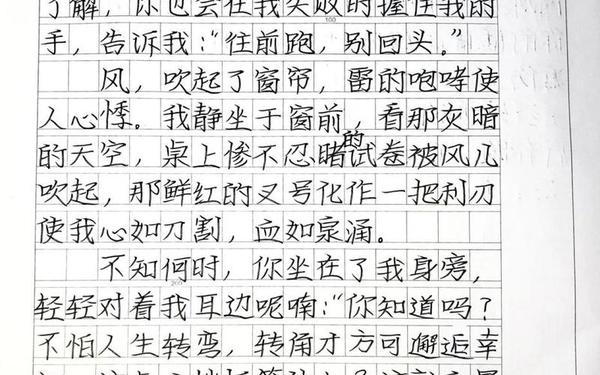 了解，你也会在我失败时握住我的
手，告诉我：“往前跑，别回头。”
100
风，吹起了窗帘，雷的咆哮使
人心悸。我静坐于窗前，看那灰暗
的天空，桌上惨不忍睹的试卷被风儿
吹起，那鲜红的叉号化作一把利刃
使我心如刀割，血如泉涌。
不知何时，你坐在了我身旁，
200
轻轻对着我耳边呢喃：“你知道吗？
不怕人生转弯，转角才方可邂逅幸